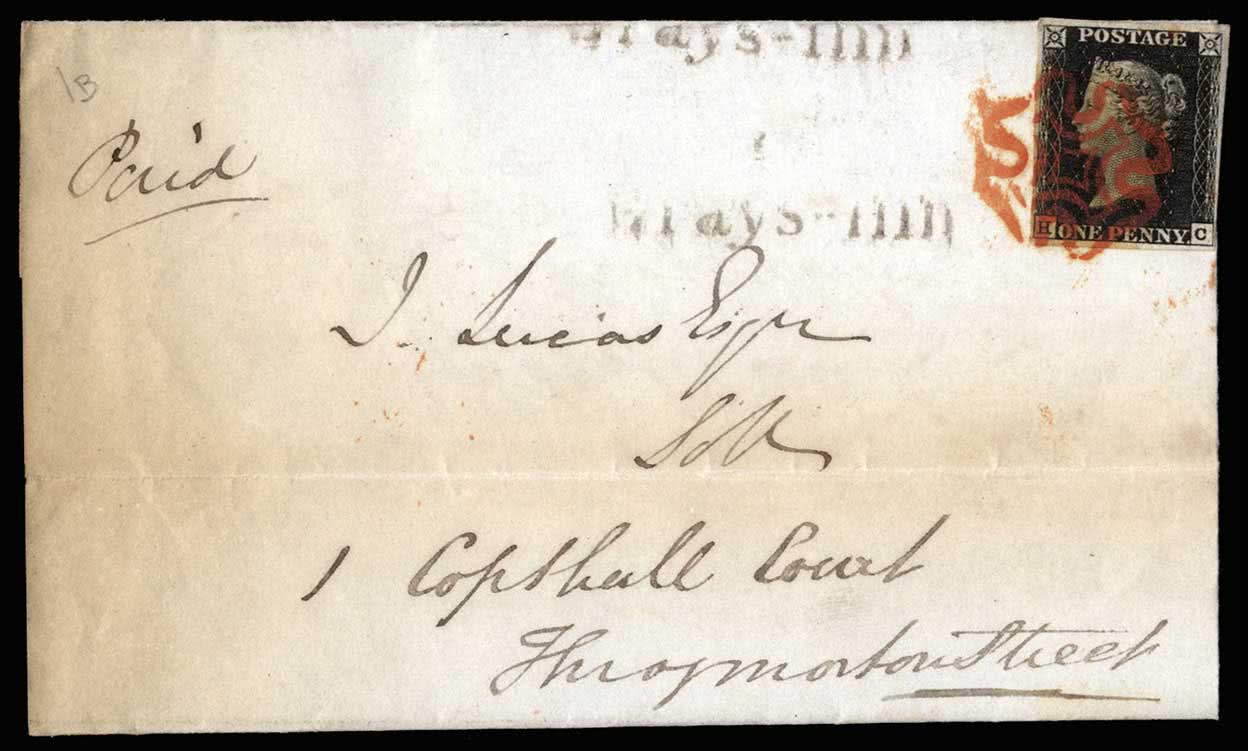 Grays-Inn
POSTAGE
1B
Paid
Grays-Inn
H ONE PENNY C
J. Lucas Esqr
Solr
1 Copthall Court
Throgmorton Street